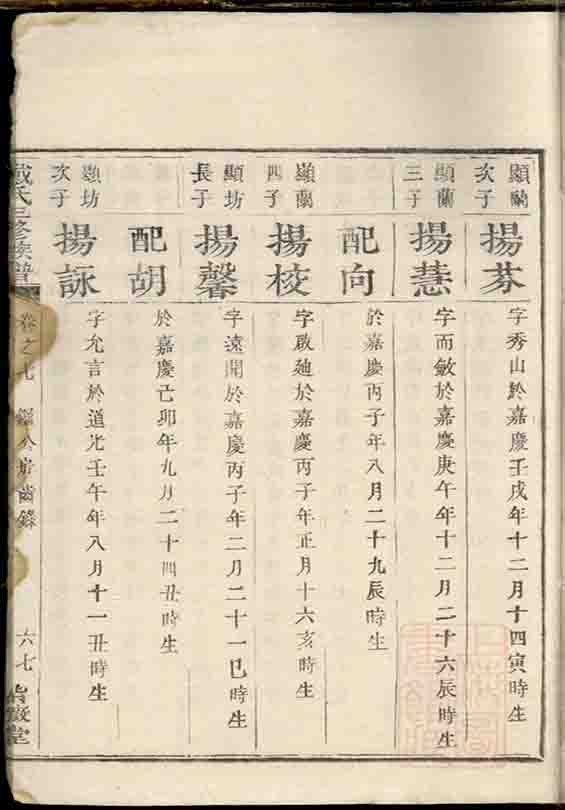 顯蘭
次子
揚芬
字秀山於嘉慶壬戌年十二月十四寅時生
顯蘭
三子
揚慧
字而敏於嘉慶庚午年十二月二十六辰時生
配向
於嘉慶丙子年八月二十九辰時生
顯蘭
四子
揚校
字啟廸於嘉慶丙子年正月十六亥時生
顯坊
長子
揚馨
字遠聞於嘉慶丙子年二月二十一巳時生
配胡
於嘉慶己卯年九月二十四丑時生
顯坊
次子
揚詠
字允言於道光壬午年八月十一丑時生
戴氏三修族譜
卷之九
公房齒錄
六七
堂